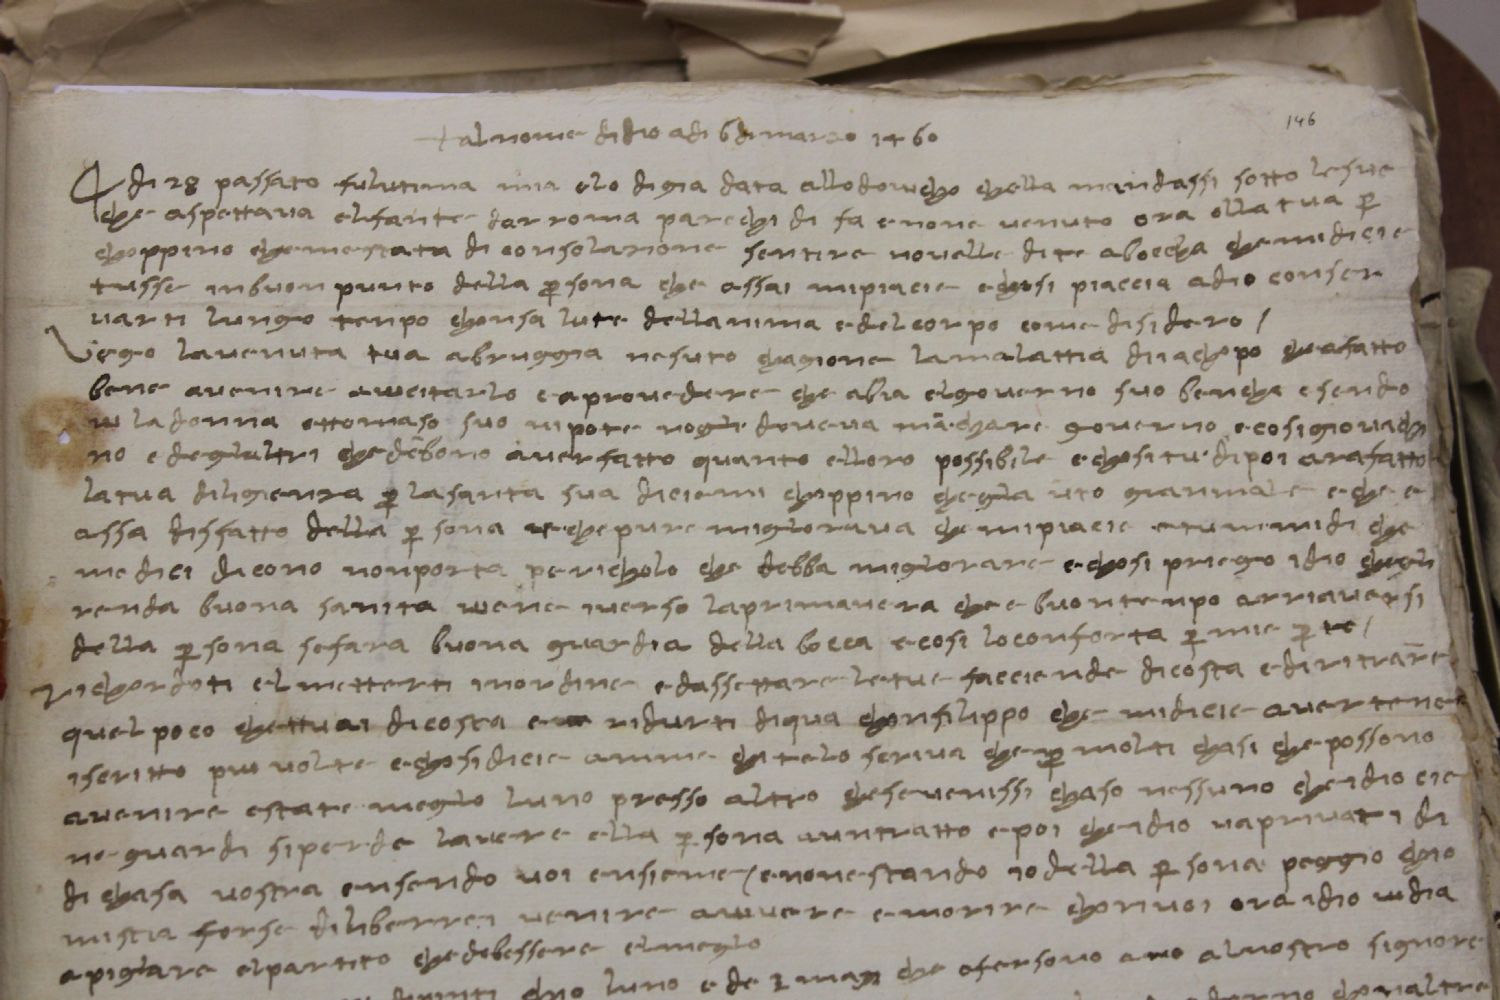 146
+ al nome di dio adi 6 di marzo 1460
Adi 28 passato fu lutima mia elo di gia data allo chella mandassi sotto lesue
che aspettava elfante darroma parechi di fa enone venuto ora olla tua per
choppino cheme stata di consolazione sentire novelle dite aboccha chemidicie
tusse inbuon punto della persona che assai mipiacie echosi piaccia adio conser
varti lungo tenpo chonsalute dellanima edelcorpo come disidero /
Vegho lavenuta tua abruggia nesuto chagione lamalattia di iachopo chaifatto
bene avenire avicitarlo eaprovedere che abia elghoverno suo benche esendo
vi ladonna ettomaso suo nipote nogli doveva manchare governo ecosi giovachi
no edeglialtri chedebono averfatto quanto elloro possibile echosi tu dipoi arafatto
latua diligienza per lasanita sua diciemi choppino chegli a uto granmale eche e
assa disfatto della persona eche pure migliorava chemipiacie etu mi di che
medici dicono nonporta pericholo che debba migliorare echosi priego idio chegli
renda buona sanita viene inverso laprimavera che e buontenpo arriaversi
della persona sefara buona guardia della bocca ecosi loconforta per mie parte /
richordoti elmetterti inordine edassettare letue facciende dicosta ediritrarre
quel poco chettuai dicosta e ridurti diqua chonfilippo che midicie avertene
iscritto piu volte echosi dicie amme chi telo scriva cheper molti chasi chepossono
avenire estate meglio luno presso altro chesevenissi chaso nessuno cheidio cie
ne guardi siperde lavere ella persona auntratto epoi cheidio vaprivati di
di chasa vostra ensendo voi ensieme / enonestando io della persona peggio chio
mistia forse diliberrei venire avivere emorire chonvoi ora idio vidia
apigliare elpartito chedebessere elmeglio
luno ede che ofersono almostro signore